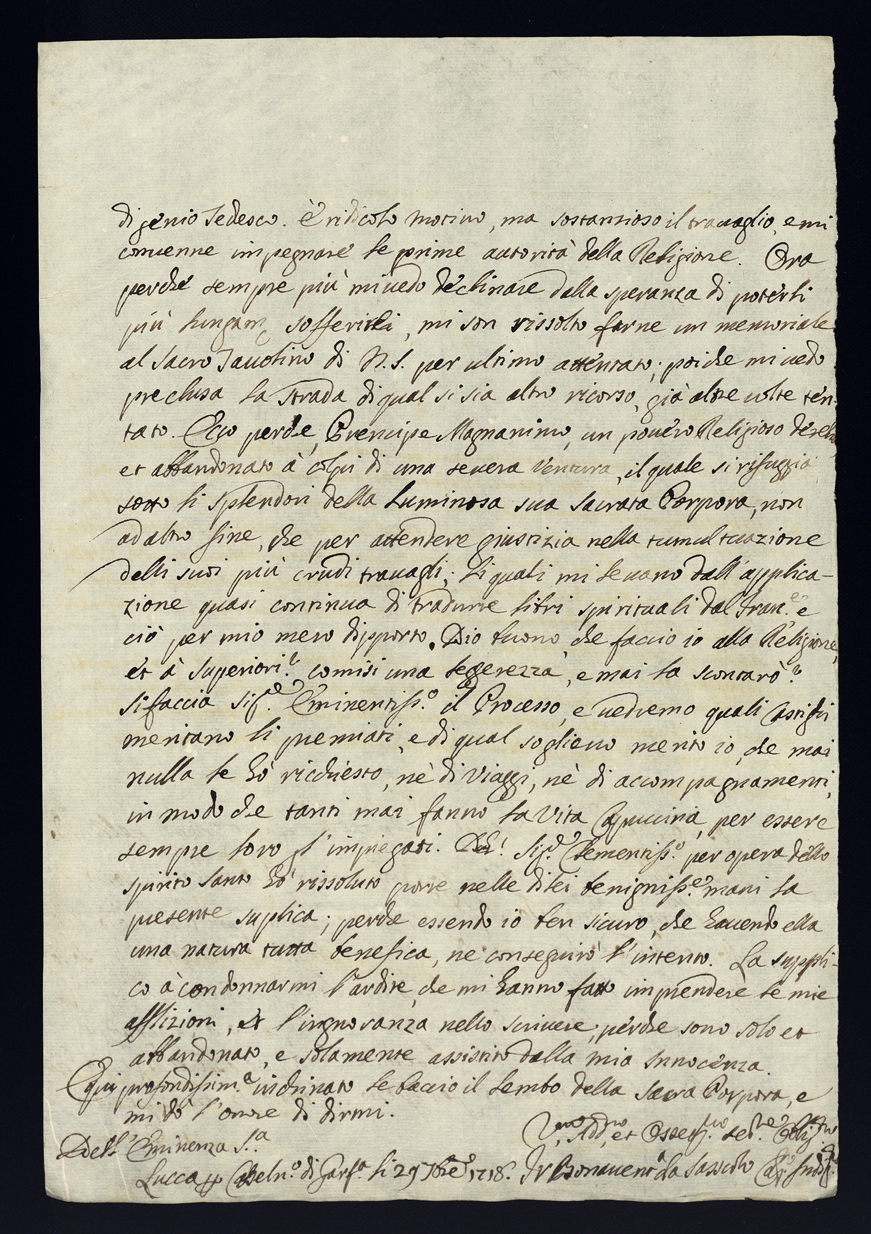 di genio Tedesco. È ridicolo motivo, ma sostanzioso il travaglio, e mi
convenne impegnare le prime autorità della Religione. Ora
perche sempre più mi vedo declinare dalla speranza di poterli
più lungam.e sofferirli, mi son rissolto farne un memoriale
al Sacro Tavolino di N.S. per ultimo attentato; poiche mi vedo
preclusa la strada di qual si sia altro ricorso, già altre volte ten-
tato. Ecco perche, Prencipe Magnanimo, un povero Religioso
et abbandonato à colpi di una severa Ventura, il quale si rifuggia
sotto li splendori della Luminosa sua Sacrata Porpora, non
ad altro fine, che per attendere giustizia nella tumultuazione
delli suoi più crudi travagli; li quali mi levano dall'applica-
zione quasi continua di tradurre libri spirituali dal Fran.e e
ciò per mio mero dipporto. Dio buono, che faccio io alla Religione,
et à Superiori? comisi una legerezza, e mai la scontarò?
si faccia Sig.r Eminentiss.o il Processo, e vedremo quali castighi
meritano li premiati, e di qual soglievo merito io, che mai
nulla le hò ricchiesto, nè di Viaggi, nè di accompagnamenti,
in modo che tanti mai fanno la Vita Capuccina, per essere
sempre loro gl'impiegati. Deh! Sig.r Clementiss.o per opera dello
spirito Santo hò rissoluto porre nelle di lei benigniss.e mani la
presente suplica; perche essendo io ben sicuro, che havendo ella
una natura tutta benefica, ne conseguirò l'intento. La suppli-
co à condonnarmi l'ardire, che mi hanno fatto imprendere le mie
afflizioni, et l'ingnoranza nello scrivere, perche sono solo et
abbandonato, e solamente assistito dalla mia Innocenza.
Qui profondissim.e inchinato le baccio il lembo della Sacra Porpora, e
mi dò l'onore di dirmi.
Dell'Eminenza S.a
et Osseq.mo ser.re
Lucca p Casteln.o di Garf.a li 29 7bre 1718. Fr Bonaventa da Sassolo